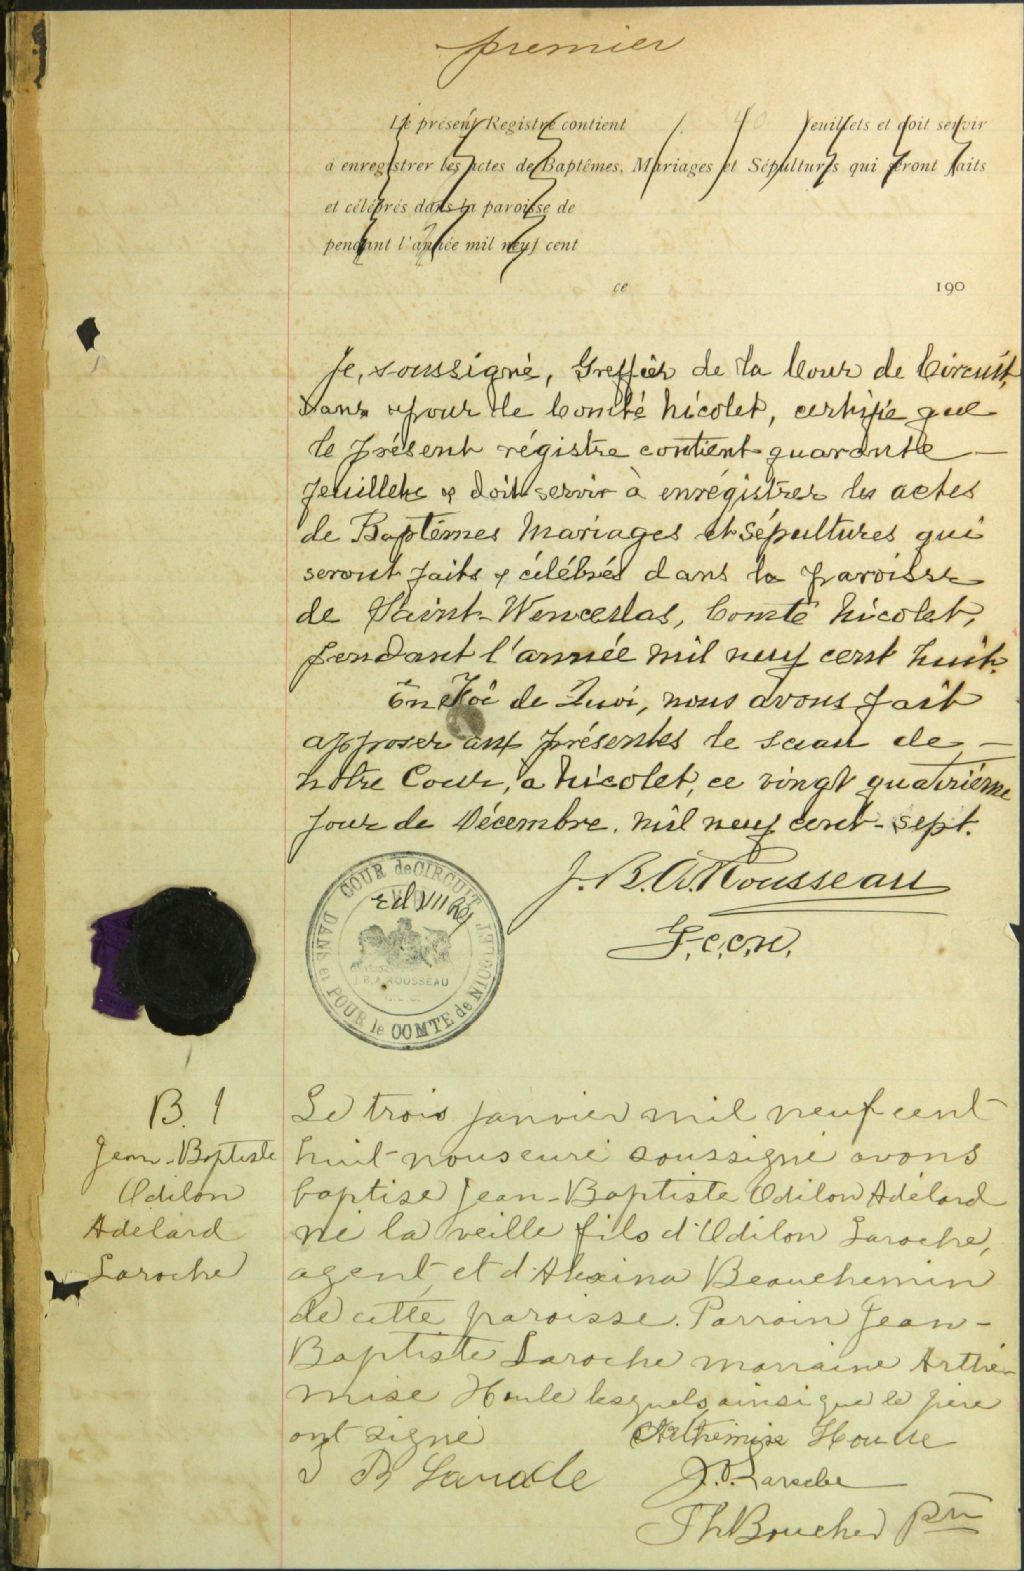 premier
Le présent Registre contient feuillets et doit servir
à enregistrer les actes de Baptêmes, Mariages et Sépultures qui seront faits
et célébrés dans la paroisse de
pendant l'année mil neuf cent
ce 190
Je, soussigné, Greffier de la Cour de Circuit,
dans & pour le Comté Nicolet, certifie que
le présent régistre contient quarante
feuillets & doit servir à enrégistrer les actes
de Baptêmes Mariages et Sépultures qui
seront faits & célébrés dans la paroisse
de Saint-Wenceslas, Comté Nicolet,
pendant l'année mil neuf cent huit.
En Foi de Quoi, nous avons fait
apposer aux présentes le sceau de
notre Cour, à Nicolet, ce vingt quatrième
jour de Décembre, mil neuf cent-sept.
J. B. A. Rousseau
G.c.c.n.
COUR de CIRCUIT
DANS et POUR le COMTE de NICOLET
J.B.A. ROUSSEAU
B. 1
Jean-Baptiste
Odilon
Adelard
Laroche
Le trois janvier mil neuf cent
huit nous curé soussigné avons
baptisé Jean-Baptiste Odilon Adélard
né la veille fils d'Odilon Laroche,
agent, et d'Alexina Beauchemin
de cette paroisse. Parrain Jean-
Baptiste Laroche marraine Arthé-
mise Houle lesquels ainsi que le père
ont signé Arthémise Houlle
J B Laroche J.O. Laroche
Th Boucher Ptre